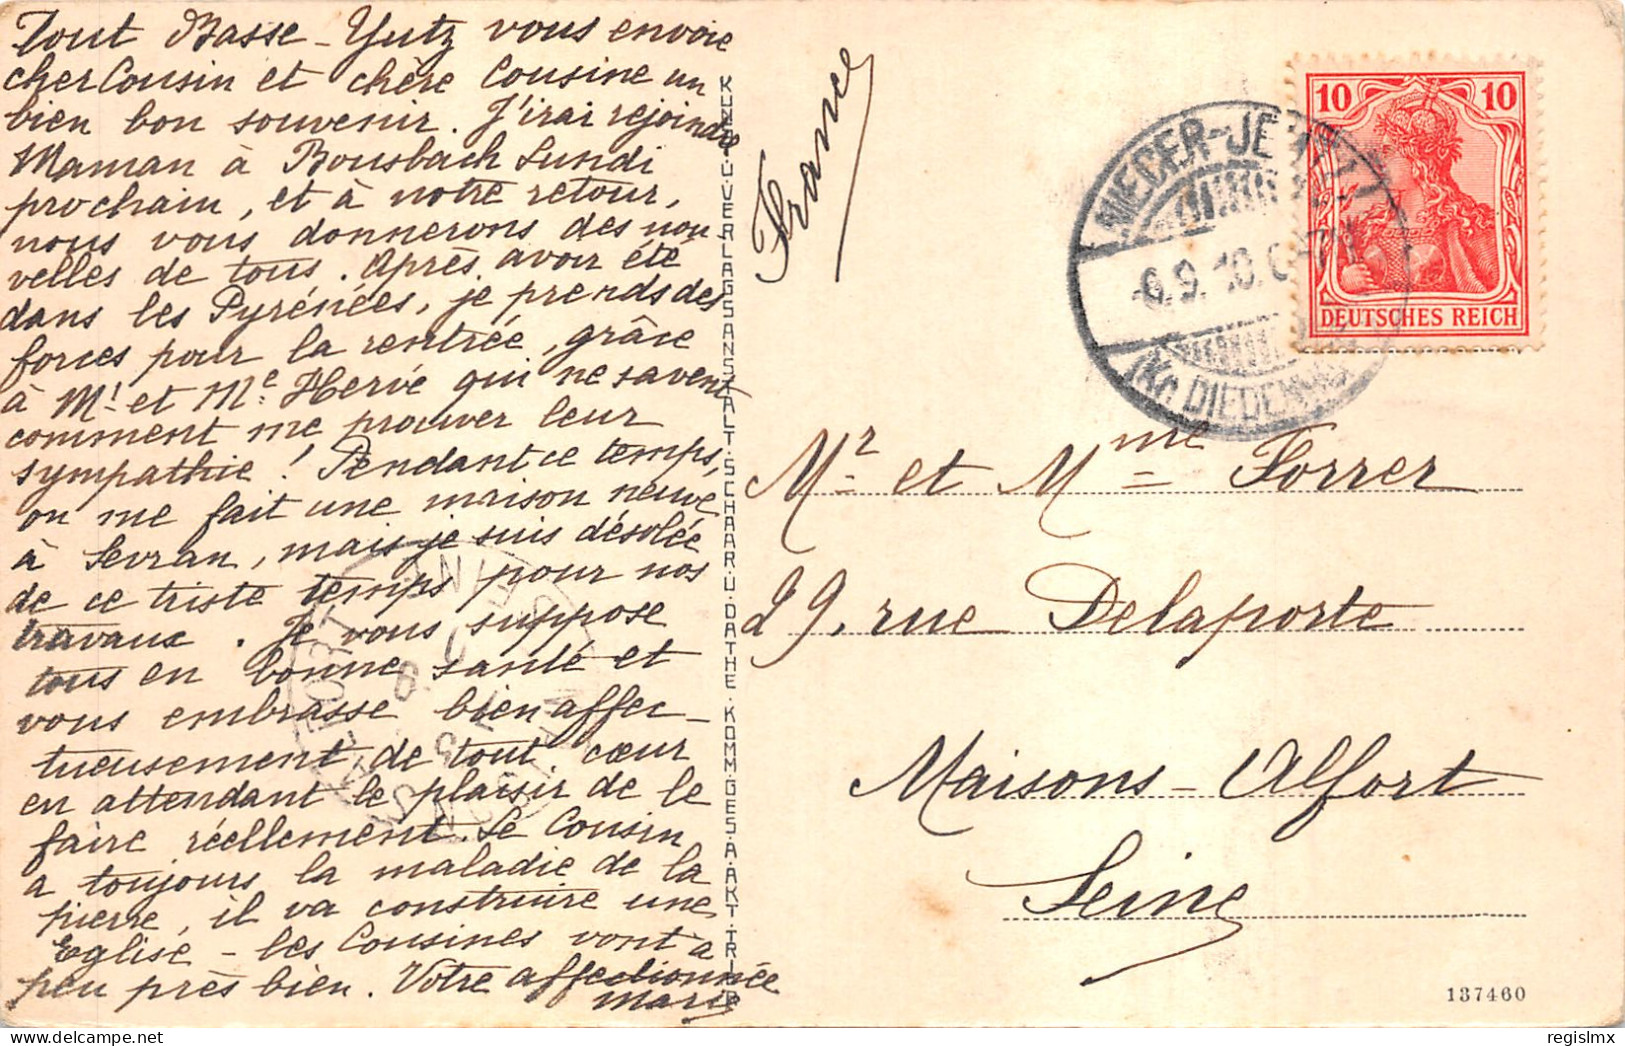 Tout Basse-Yutz vous envoie
cher Cousin et chère Cousine un
bien bon souvenir. J'irai rejoindre
Maman à Bousbach Lundi
prochain, et à notre retour,
nous vous donnerons des nou-
velles de tous. Après avoir été
dans les Pyrénées, je prends des
forces pour la rentrée, grâce
à Mr. et Me. Hervé qui ne savent
comment me prouver leur
sympathie! Pendant ce temps,
on me fait une maison neuve
à Sevran, mais je suis désolée
de ce triste temps pour nos
travaux. Je vous suppose
tous en bonne santé et
vous embrasse bien affec-
tueusement de tout cœur
en attendant le plaisir de le
faire réellement. Le Cousin
a toujours la maladie de la
pierre, il va construire une
Eglise - les Cousines vont à
peu près bien. Votre affectionnée
Marie
KUNST U. VERLAGSANSTALT SCHAAR U. DATHE KOMM.GES.A.AKT. TRIER
France
10 10
DEUTSCHES REICH
NIEDER-JEUTZ
6.9.10.
(Kr. DIEDENH
Mr et Mme Forrer
29, rue Delaporte
Maisons-Alfort
Seine
137460
regislmx